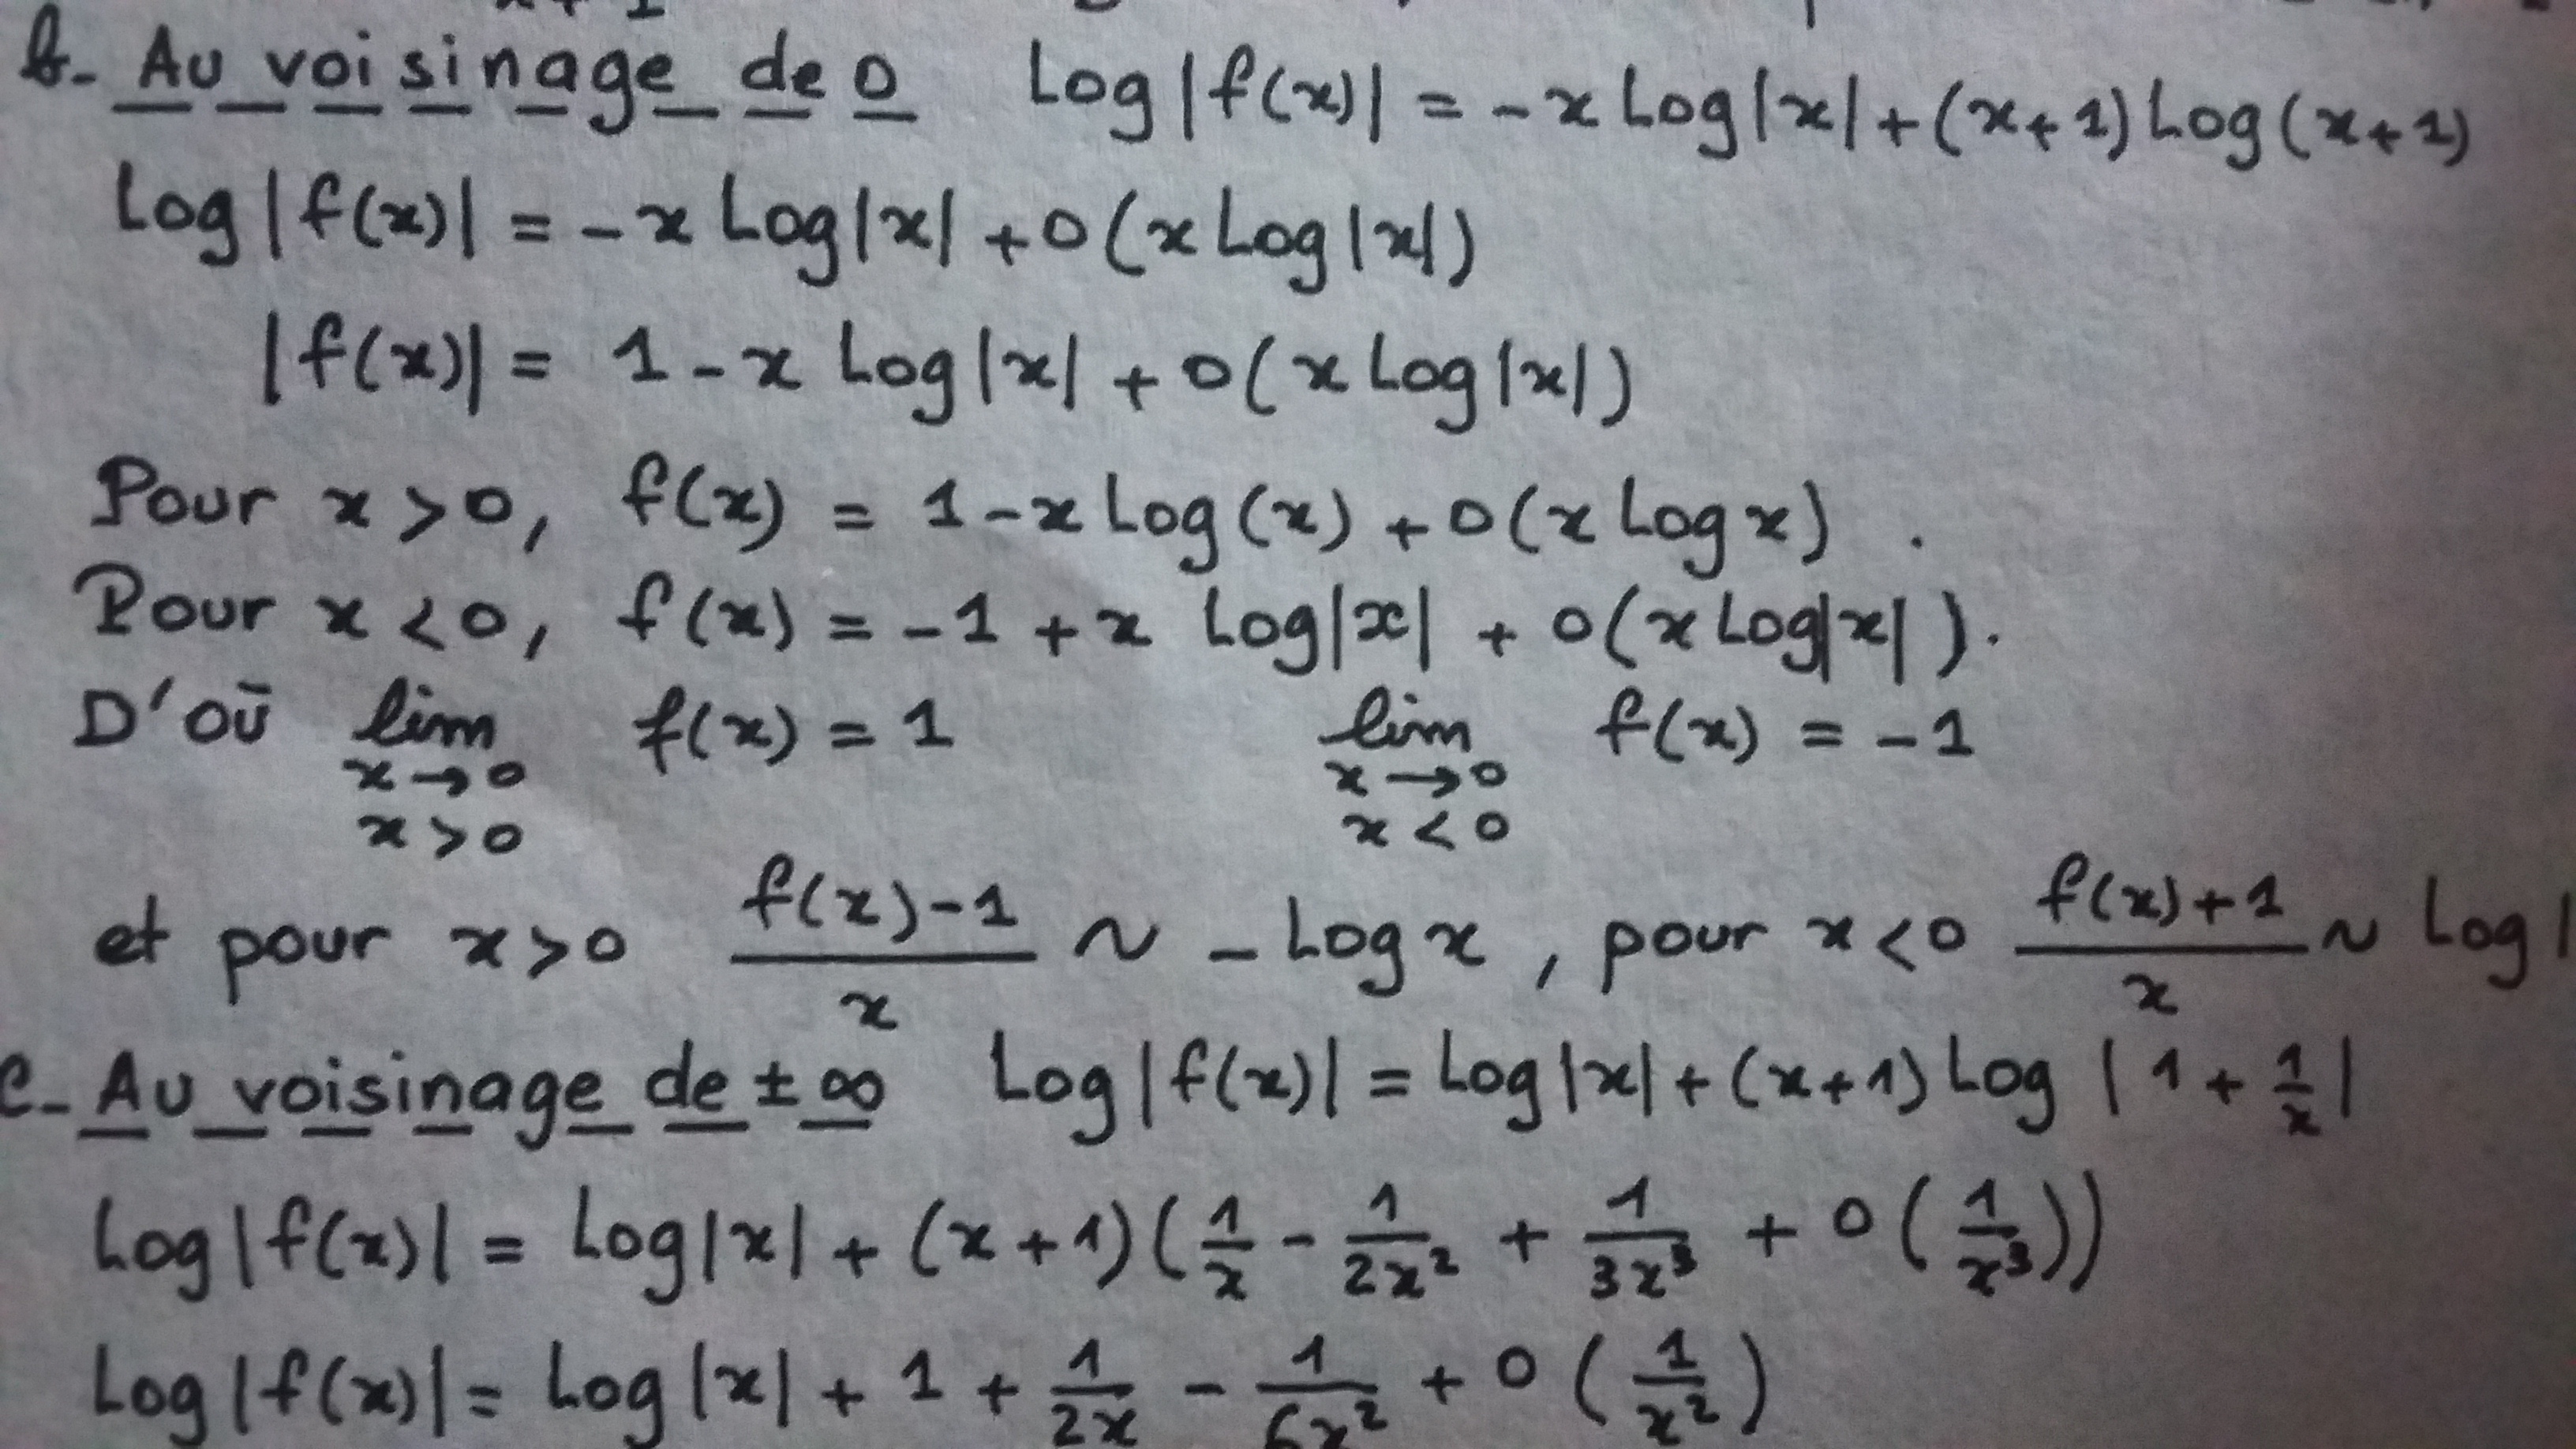 b- Au voisinage de 0 Log|f(x)| = -x Log|x| + (x+1) Log(x+1)
Log|f(x)| = -x Log|x| + o(x Log|x|)
|f(x)| = 1 - x Log|x| + o(x Log|x|)
Pour x > 0, f(x) = 1 - x Log(x) + o(x Log x).
Pour x < 0, f(x) = -1 + x Log|x| + o(x Log|x|).
D'où lim f(x) = 1 lim f(x) = -1
x → 0 x → 0
x > 0 x < 0
et pour x > 0 (f(x) - 1)/x ~ - Log x, pour x < 0 (f(x) + 1)/x ~ Log|
c- Au voisinage de ± ∞ Log|f(x)| = Log|x| + (x+1) Log |1 + 1/x|
Log|f(x)| = Log|x| + (x+1)(1/x - 1/2x² + 1/3x³ + o(1/x³))
Log|f(x)| = Log|x| + 1 + 1/2x - 1/6x² + o(1/x²)